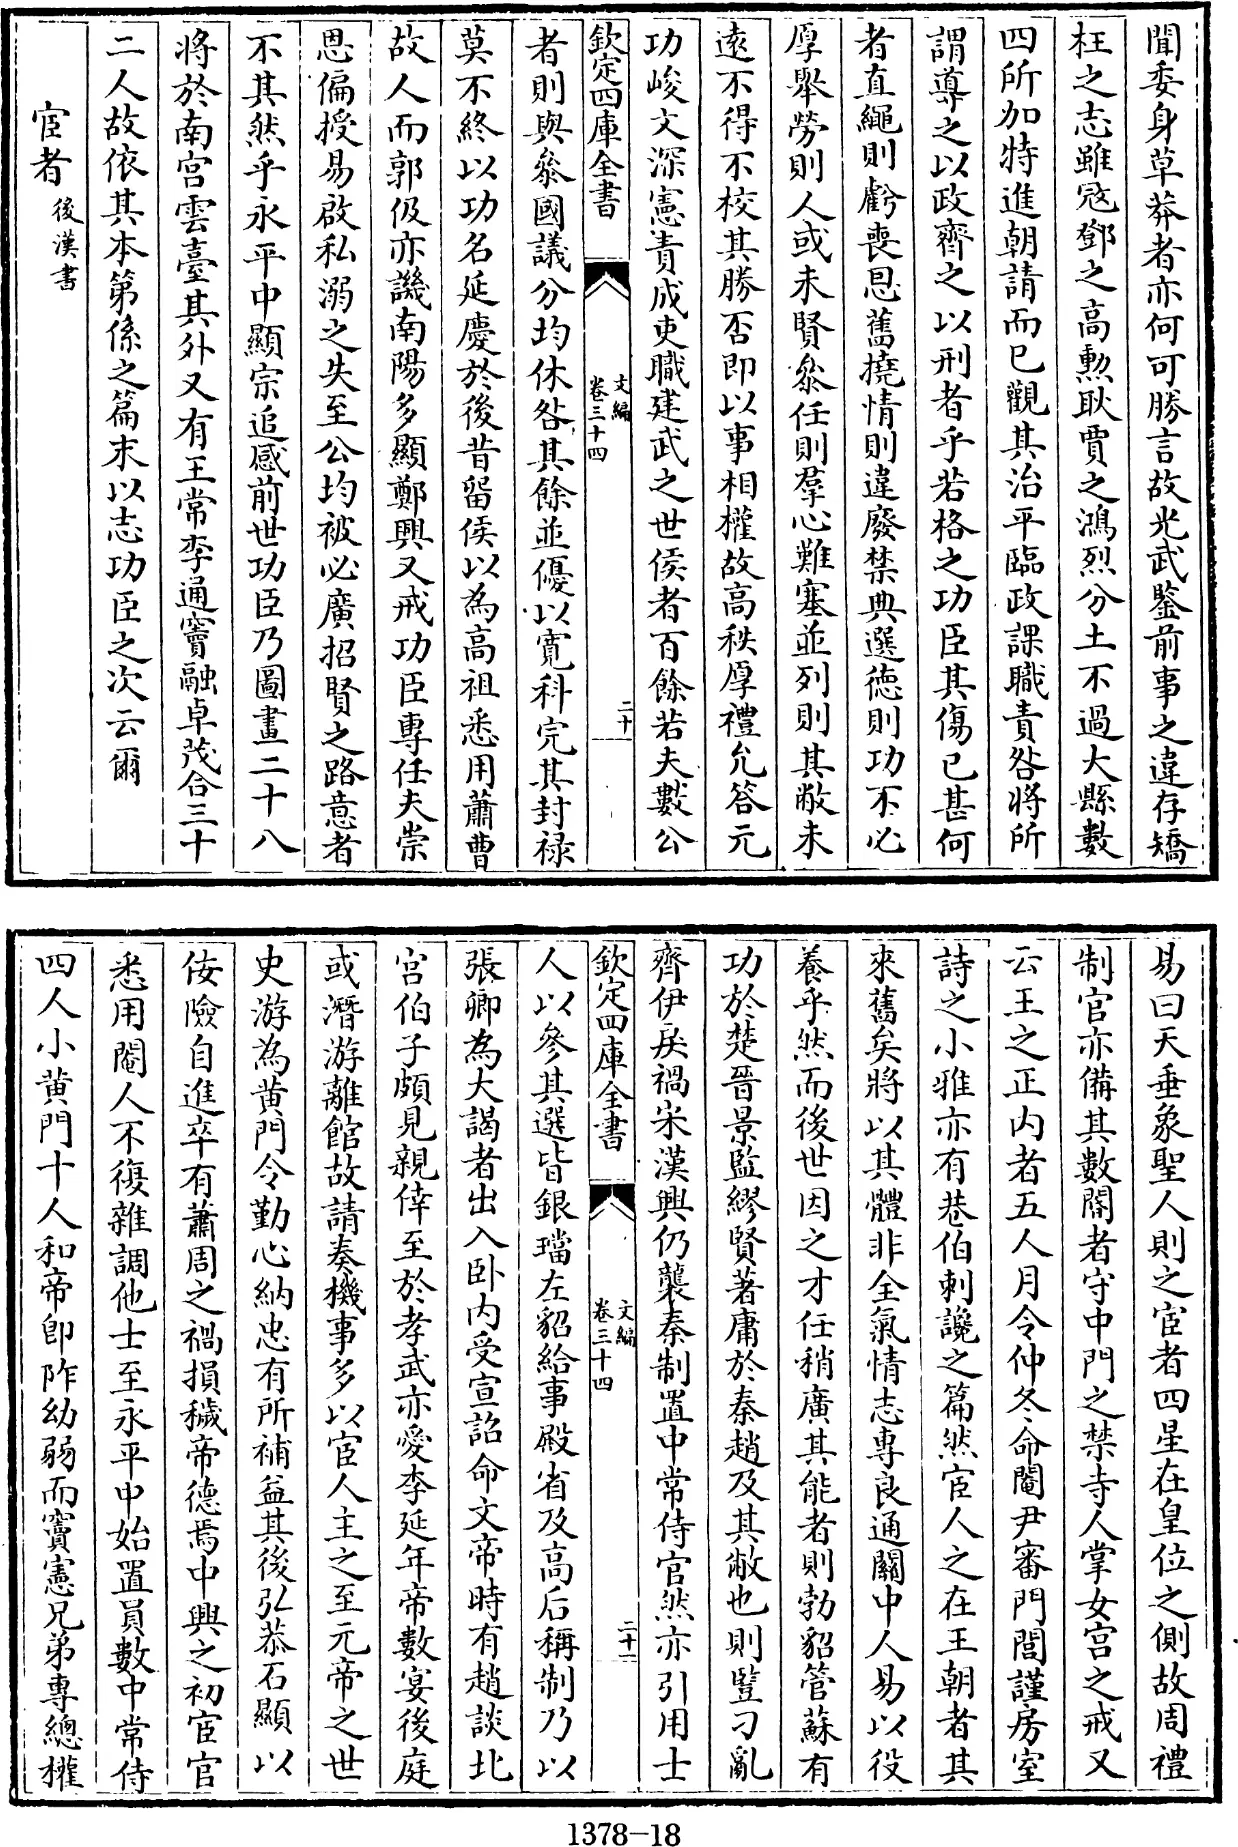 聞委身草莽者亦何可勝言故光武鑒前事之違存矯
枉之志雖冦鄧之高勲耿賈之鴻烈分土不過大縣數
四所加特進朝請而已觀其治平臨政課職責咎將所
謂導之以政齊之以刑者乎若格之功臣其傷已甚何
者直繩則虧喪恩舊撓情則違廢禁典選徳則功不必
厚舉勞則人或未賢叅任則羣心難塞並列則其敝未
逺不得不校其勝否即以事相權故高秩厚禮允答元
功峻文深憲責成吏職建武之世侯者百餘若夫數公
欽定四庫全書
文編
卷三十四
二十
者則與叅國議分均休咎其餘並優以寛科完其封禄
莫不終以功名延慶於後昔留侯以為高祖悉用蕭曹
故人而郭伋亦譏南陽多顯鄭興又戒功臣専任夫崇
恩偏授易啟私溺之失至公均被必廣招賢之路意者
不其然乎永平中顯宗追感前世功臣乃圖畫二十八
將於南宫雲臺其外又有王常李通竇融卓茂合三十
二人故依其本第係之篇末以志功臣之次云爾
宦者 後漢書
易曰天垂象聖人則之宦者四星在皇位之側故周禮
制官亦備其數閽者守中門之禁寺人掌女宫之戒又
云王之正内者五人月令仲冬命閹尹審門閭謹房室
詩之小雅亦有巷伯刺讒之篇然宦人之在王朝者其
來舊矣將以其體非全氣情志専良通關中人易以役
養乎然而後世因之才任稍廣其能者則勃貂管蘇有
功於楚晉景監繆賢著庸於秦趙及其敝也則豎刁亂
齊伊戾禍宋漢興仍襲秦制置中常侍官然亦引用士
欽定四庫全書
文編
卷三十四
二十一
人以參其選皆銀璫左貂給事殿省及高后稱制乃以
張卿為大謁者出入卧内受宣詔命文帝時有趙談北
宫伯子頗見親倖至於孝武亦愛李延年帝數宴後庭
或潛游離館故請奏機事多以宦人主之至元帝之世
史游為黄門令勤心納忠有所補益其後弘恭石顯以
佞險自進卒有蕭周之禍損穢帝徳焉中興之初宦官
悉用閹人不復雜調他士至永平中始置員數中常侍
四人小黄門十人和帝即阼幼弱而竇憲兄弟専總權
1378-18